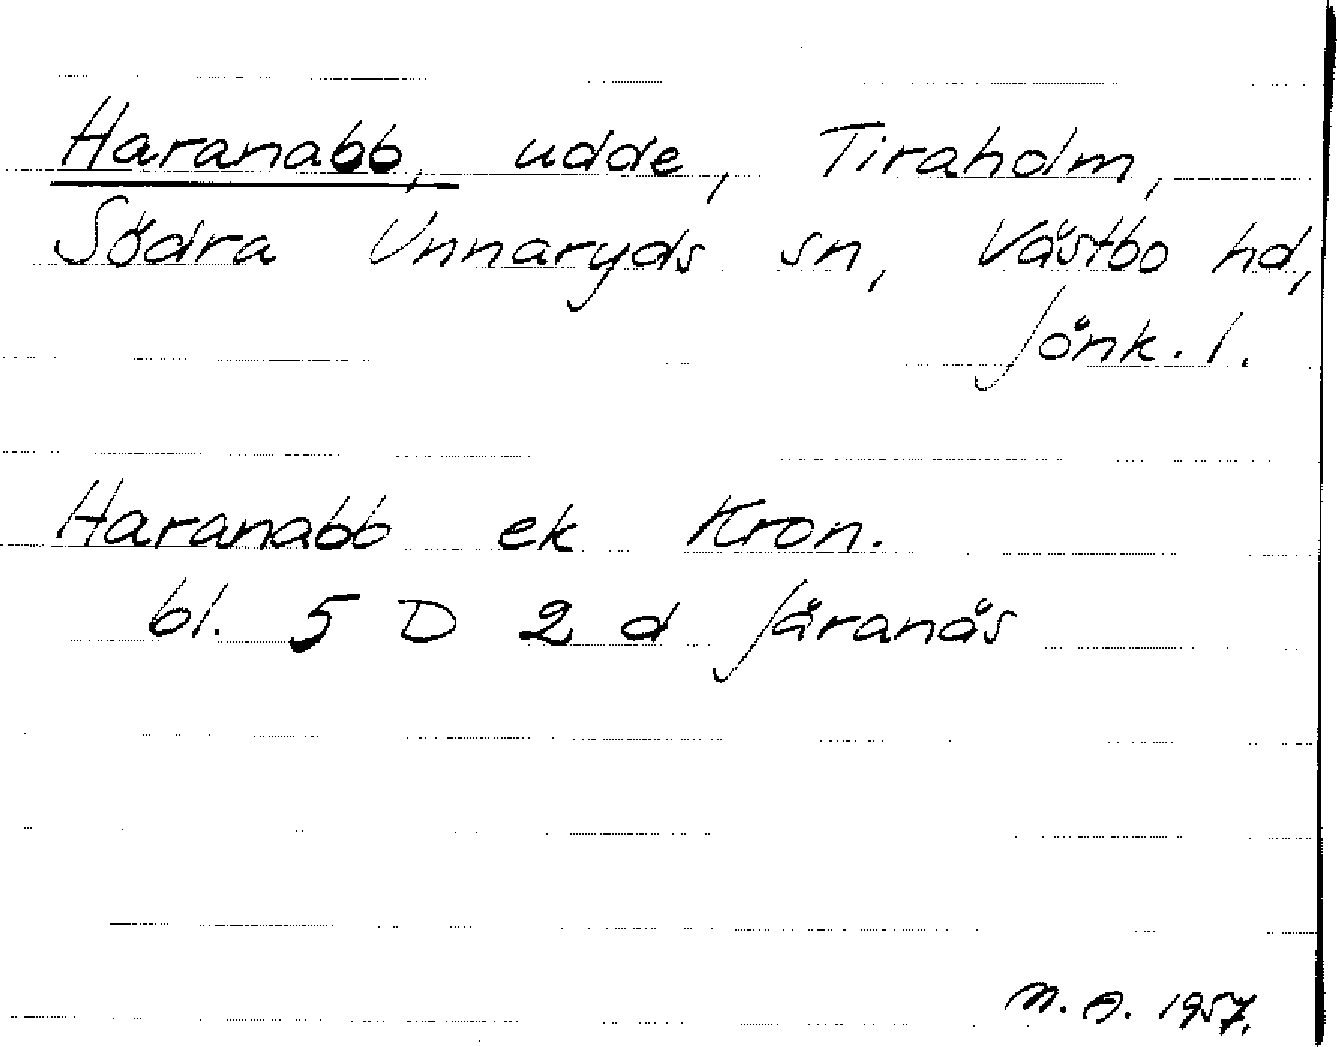 Haranabb, udde, Tiraholm,
Södra Unnaryds sn, Västbo hd,
Jönk. l.
Haranabb ek Kron.
bl. 5 D 2 d Järanäs
N. A. 1957.